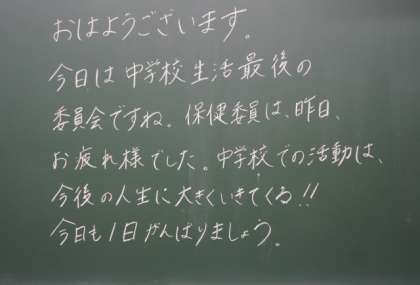 おはようございます。
今日は中学校生活最後の
委員会ですね。保健委員は、昨日、
お疲れ様でした。中学校での活動は、
今後の人生に大きくいきてくる!!
今日も1日がんばりましょう。